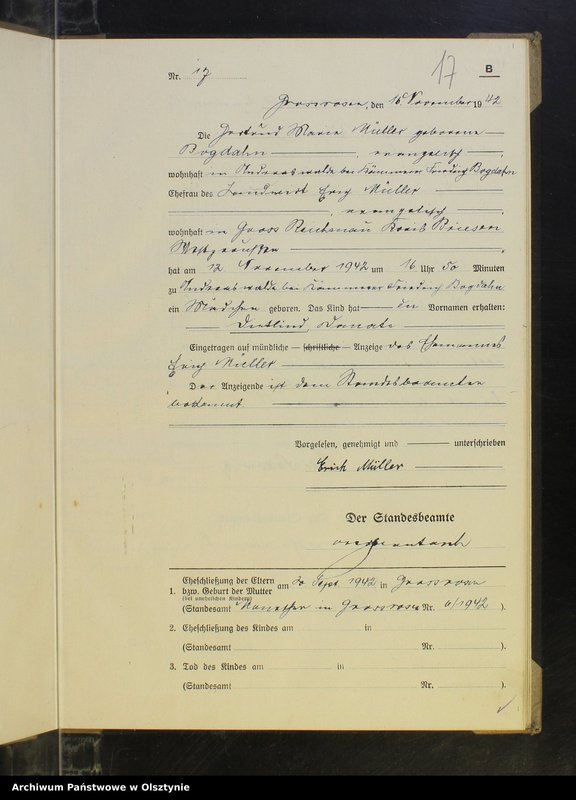 17 B
Nr. 17
Grossrosen, den 16 November 1942
Die Gertrud Marie Müller geborene
Bogdahn, evangelisch,
wohnhaft in Andreaswalde bei Kämmerer Friedrich Bogdahn
Ehefrau des Landwirt Erich Müller
, evangelisch,
wohnhaft in Gross Kreis Briesen
Westpreußen
hat am 12. November 1942 um 16 Uhr 50 Minuten
zu Andreaswalde bei Kämmerer Friedrich Bogdahn
ein Mädchen geboren. Das Kind hat die Vornamen erhalten:
Dietlind, Donate
Eingetragen auf mündliche — schriftliche — Anzeige des Ehemannes
Erich Müller
Der Anzeigende ist dem Standesbeamten
bekannt.
Vorgelesen, genehmigt und unterschrieben
Erich Müller
Der Standesbeamte
1. Eheschließung der Eltern
bzw. Geburt der Mutter
(bei unehelichen Kindern)
am 20 Sept. 1942 in Grossrosen
(Standesamt in Grossrosen Nr. 6/1942).
2. Eheschließung des Kindes am in
(Standesamt Nr. ).
3. Tod des Kindes am in
(Standesamt Nr. ).
Archiwum Państwowe w Olsztynie